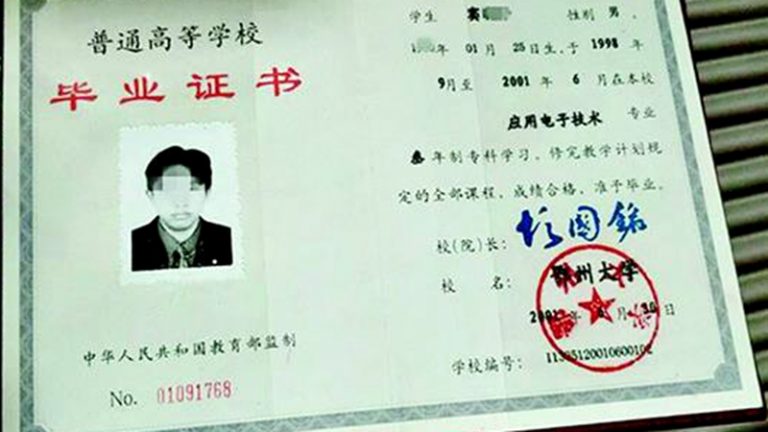 普通高等学校
毕业证书
中华人民共和国教育部监制
No. 01091768
学生 性别 男，
年 01 月 25日生，于 1998 年
9月至 2001 年 6 月在本校
应用电子技术 专业
叁 年制专科学习，修完教学计划规
定的全部课程，成绩合格，准予毕业。
校(院)长：
校 名： 鄂州大学
2001 年 6 月 30 日
学校编号：